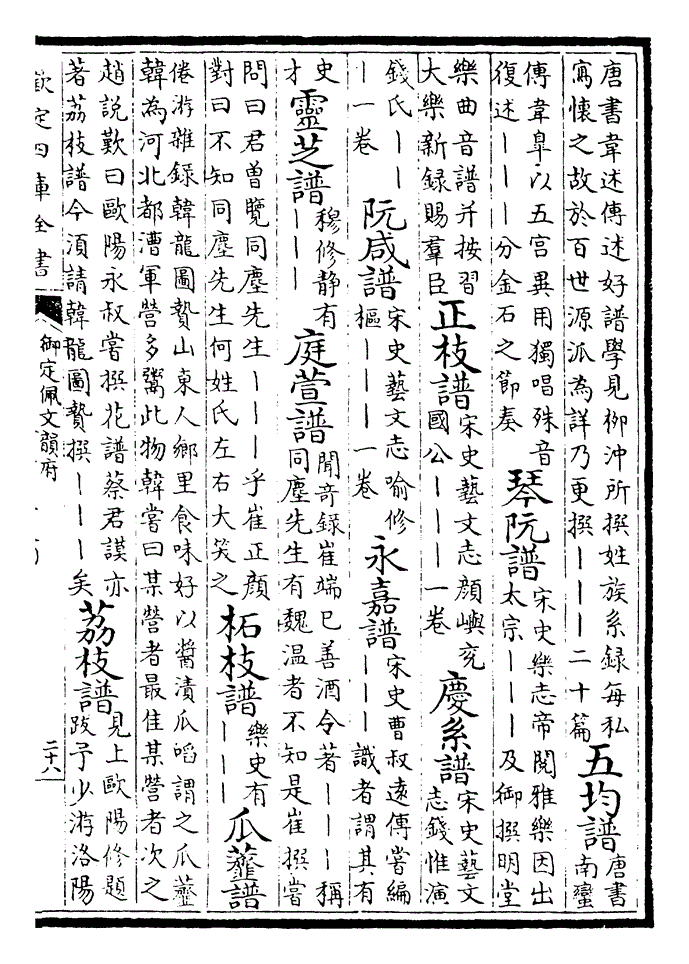 唐書韋述傳述好譜學見柳沖所撰姓族系録每私
寫懷之故於百世源派為詳乃更撰丨丨丨二十篇
五均譜
唐書
南蠻
傳韋臯以五宫異用獨唱殊音
復述丨丨丨分金石之節奏
琴阮譜
宋史樂志帝閱雅樂因出
太宗丨丨丨及御撰明堂
樂曲音譜并按習
大樂新録賜羣臣
正枝譜
宋史藝文志顔嶼兖
國公丨丨丨一卷
慶系譜
宋史藝文
志錢惟演
錢氏丨丨
丨一卷
阮咸譜
宋史藝文志喻修
樞丨丨丨一卷
永嘉譜
宋史曹叔遠傳嘗編
丨丨丨識者謂其有
史
才
靈芝譜
穆修静有
丨丨丨
庭萱譜
聞竒録崔端巳善酒令著丨丨丨稱
同塵先生有魏温者不知是崔撰嘗
問曰君曽覽同塵先生丨丨丨乎崔正顔
對曰不知同塵先生何姓氏左右大笑之
柘枝譜
樂史有
丨丨丨
瓜虀譜
倦游雜録韓龍圖贄山東人鄉里食味好以醬漬瓜啗謂之瓜虀
韓為河北都漕軍營多鬻此物韓嘗曰某營者最佳某營者次之
趙說歎曰歐陽永叔嘗撰花譜蔡君謨亦
著荔枝譜今湏請韓龍圖贄撰丨丨丨矣
荔枝譜
見上歐陽修題
跋予少游洛陽
欽定四庫全書
御定佩文韻府
二十八